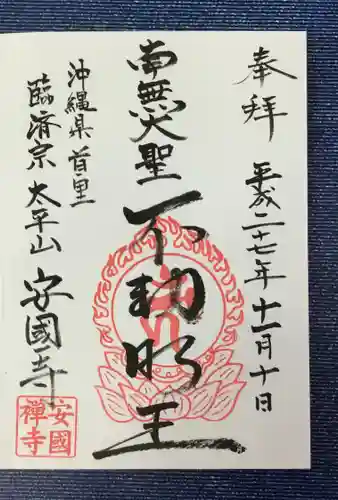 奉拝
平成二十七年十一月十日
南無大聖
不動明王
沖縄県首里
臨済宗太平山安國寺
安國禅寺